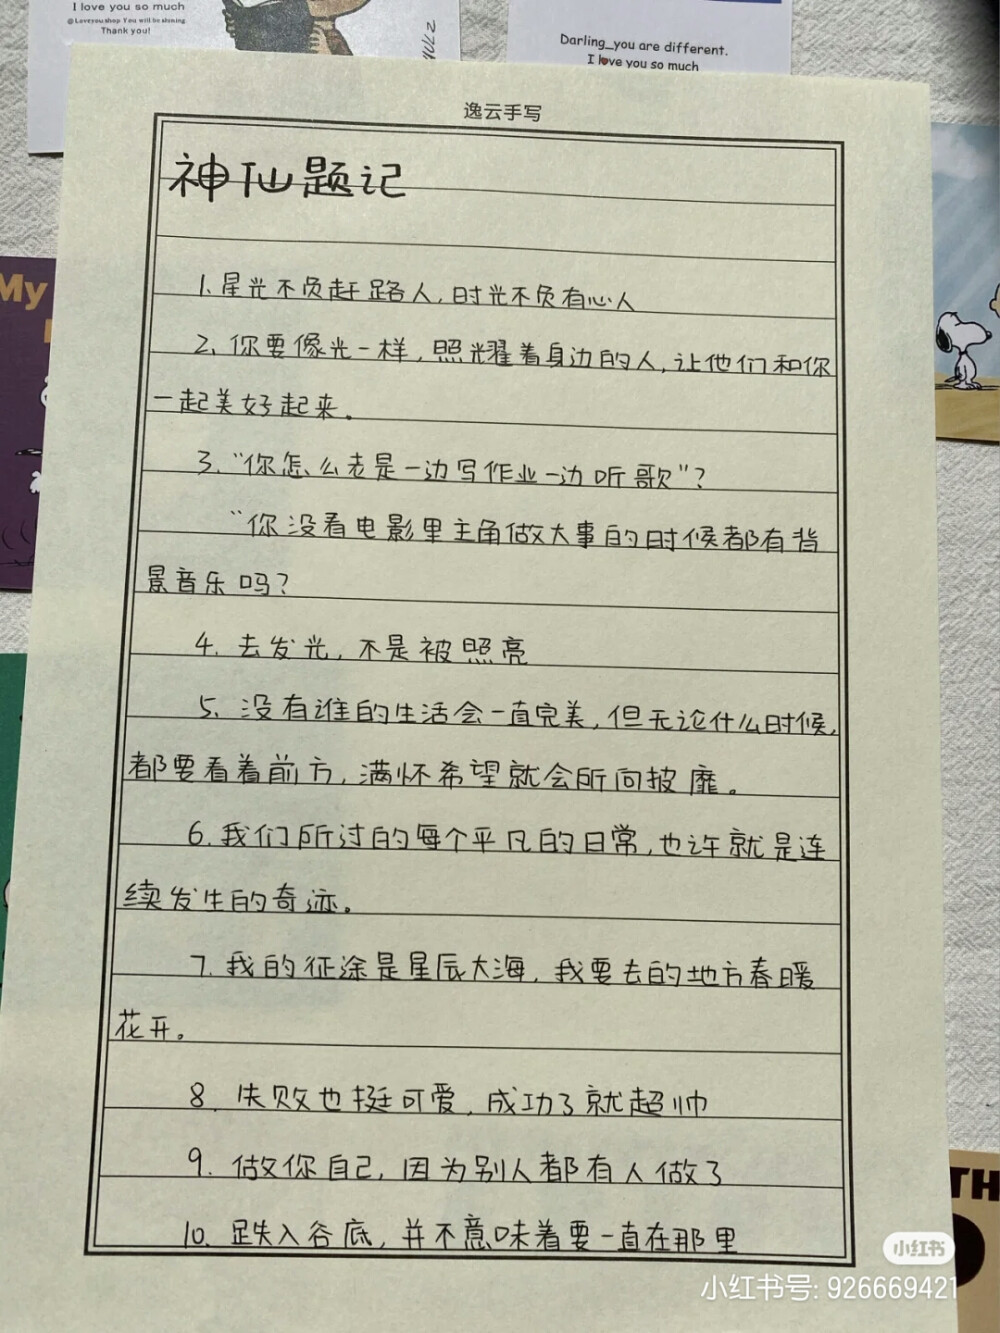 I love you so much
@Loveyou shop You will be shining
Thank you!
Darling_you are different.
I love you so much
逸云手写
神仙题记
1.星光不负赶路人,时光不负有心人
2.你要像光一样,照耀着身边的人,让他们和你
一起美好起来。
3.“你怎么老是一边写作业一边听歌”?
“你没看电影里主角做大事的时候都有背
景音乐吗?
4.去发光,不是被照亮
5.没有谁的生活会一直完美,但无论什么时候,
都要看着前方,满怀希望就会所向披靡。
6.我们所过的每个平凡的日常,也许就是连
续发生的奇迹。
7.我的征途是星辰大海,我要去的地方春暖
花开。
8.失败也挺可爱,成功了就超帅
9.做你自己,因为别人都有人做了
10.跌入谷底,并不意味着要一直在那里
My
TH
小红书
小红书号: 926669421